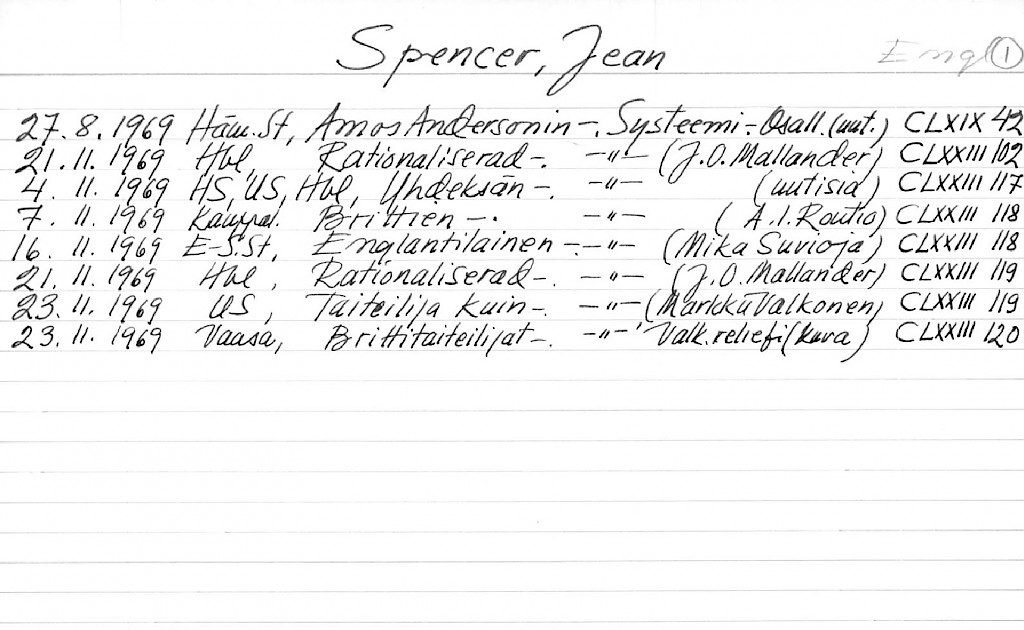 Spencer, Jean Engl ①
27.8.1969 Häm.St, Amos Andersonin -. Systeemi-. Osall. (uut.) CLXIX 42
21.11.1969 Hbl, Rationaliserad -. -"- (J.O.Mallander) CLXXIII 102
4.11.1969 HS, US, Hbl, Yhdeksän -. -"- (uutisia) CLXXIII 117
7.11.1969 Kauppal. Brittien -. -"- (A.I.Routio) CLXXIII 118
16.11.1969 E-S.St, Englantilainen -. -"- (Mika Suvioja) CLXXIII 118
21.11.1969 Hbl, Rationaliserad -. -"- (J.O.Mallander) CLXXIII 119
23.11.1969 US, Taiteilija kuin -. -"- (Markku Valkonen) CLXXIII 119
23.11.1969 Vaasa, Brittitaiteilijat -. -"- Valk.reliefi (kuva) CLXXIII 120